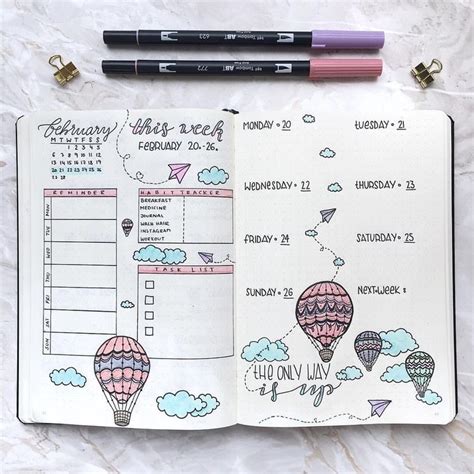 623 Tombow ABT
772 Tombow ABT
february
M T W T F S S
1 2 3 4 5
6 7 8 9 10 11 12
13 14 15 16 17 18 19
20 21 22 23 24 25 26
27 28
this week
FEBRUARY 20-26.
REMINDER
MON
TUE
WED
THU
FRI
SAT
SUN
HABIT TRACKER
BREAKFAST
MEDICINE
JOURNAL
WASH HAIR
INSTAGRAM
WORKOUT
TASK LIST
MONDAY • 20
TUESDAY • 21
WEDNESDAY • 22
THURSDAY • 23
FRIDAY • 24
SATURDAY • 25
SUNDAY • 26
NEXT WEEK
THE ONLY WAY
is up